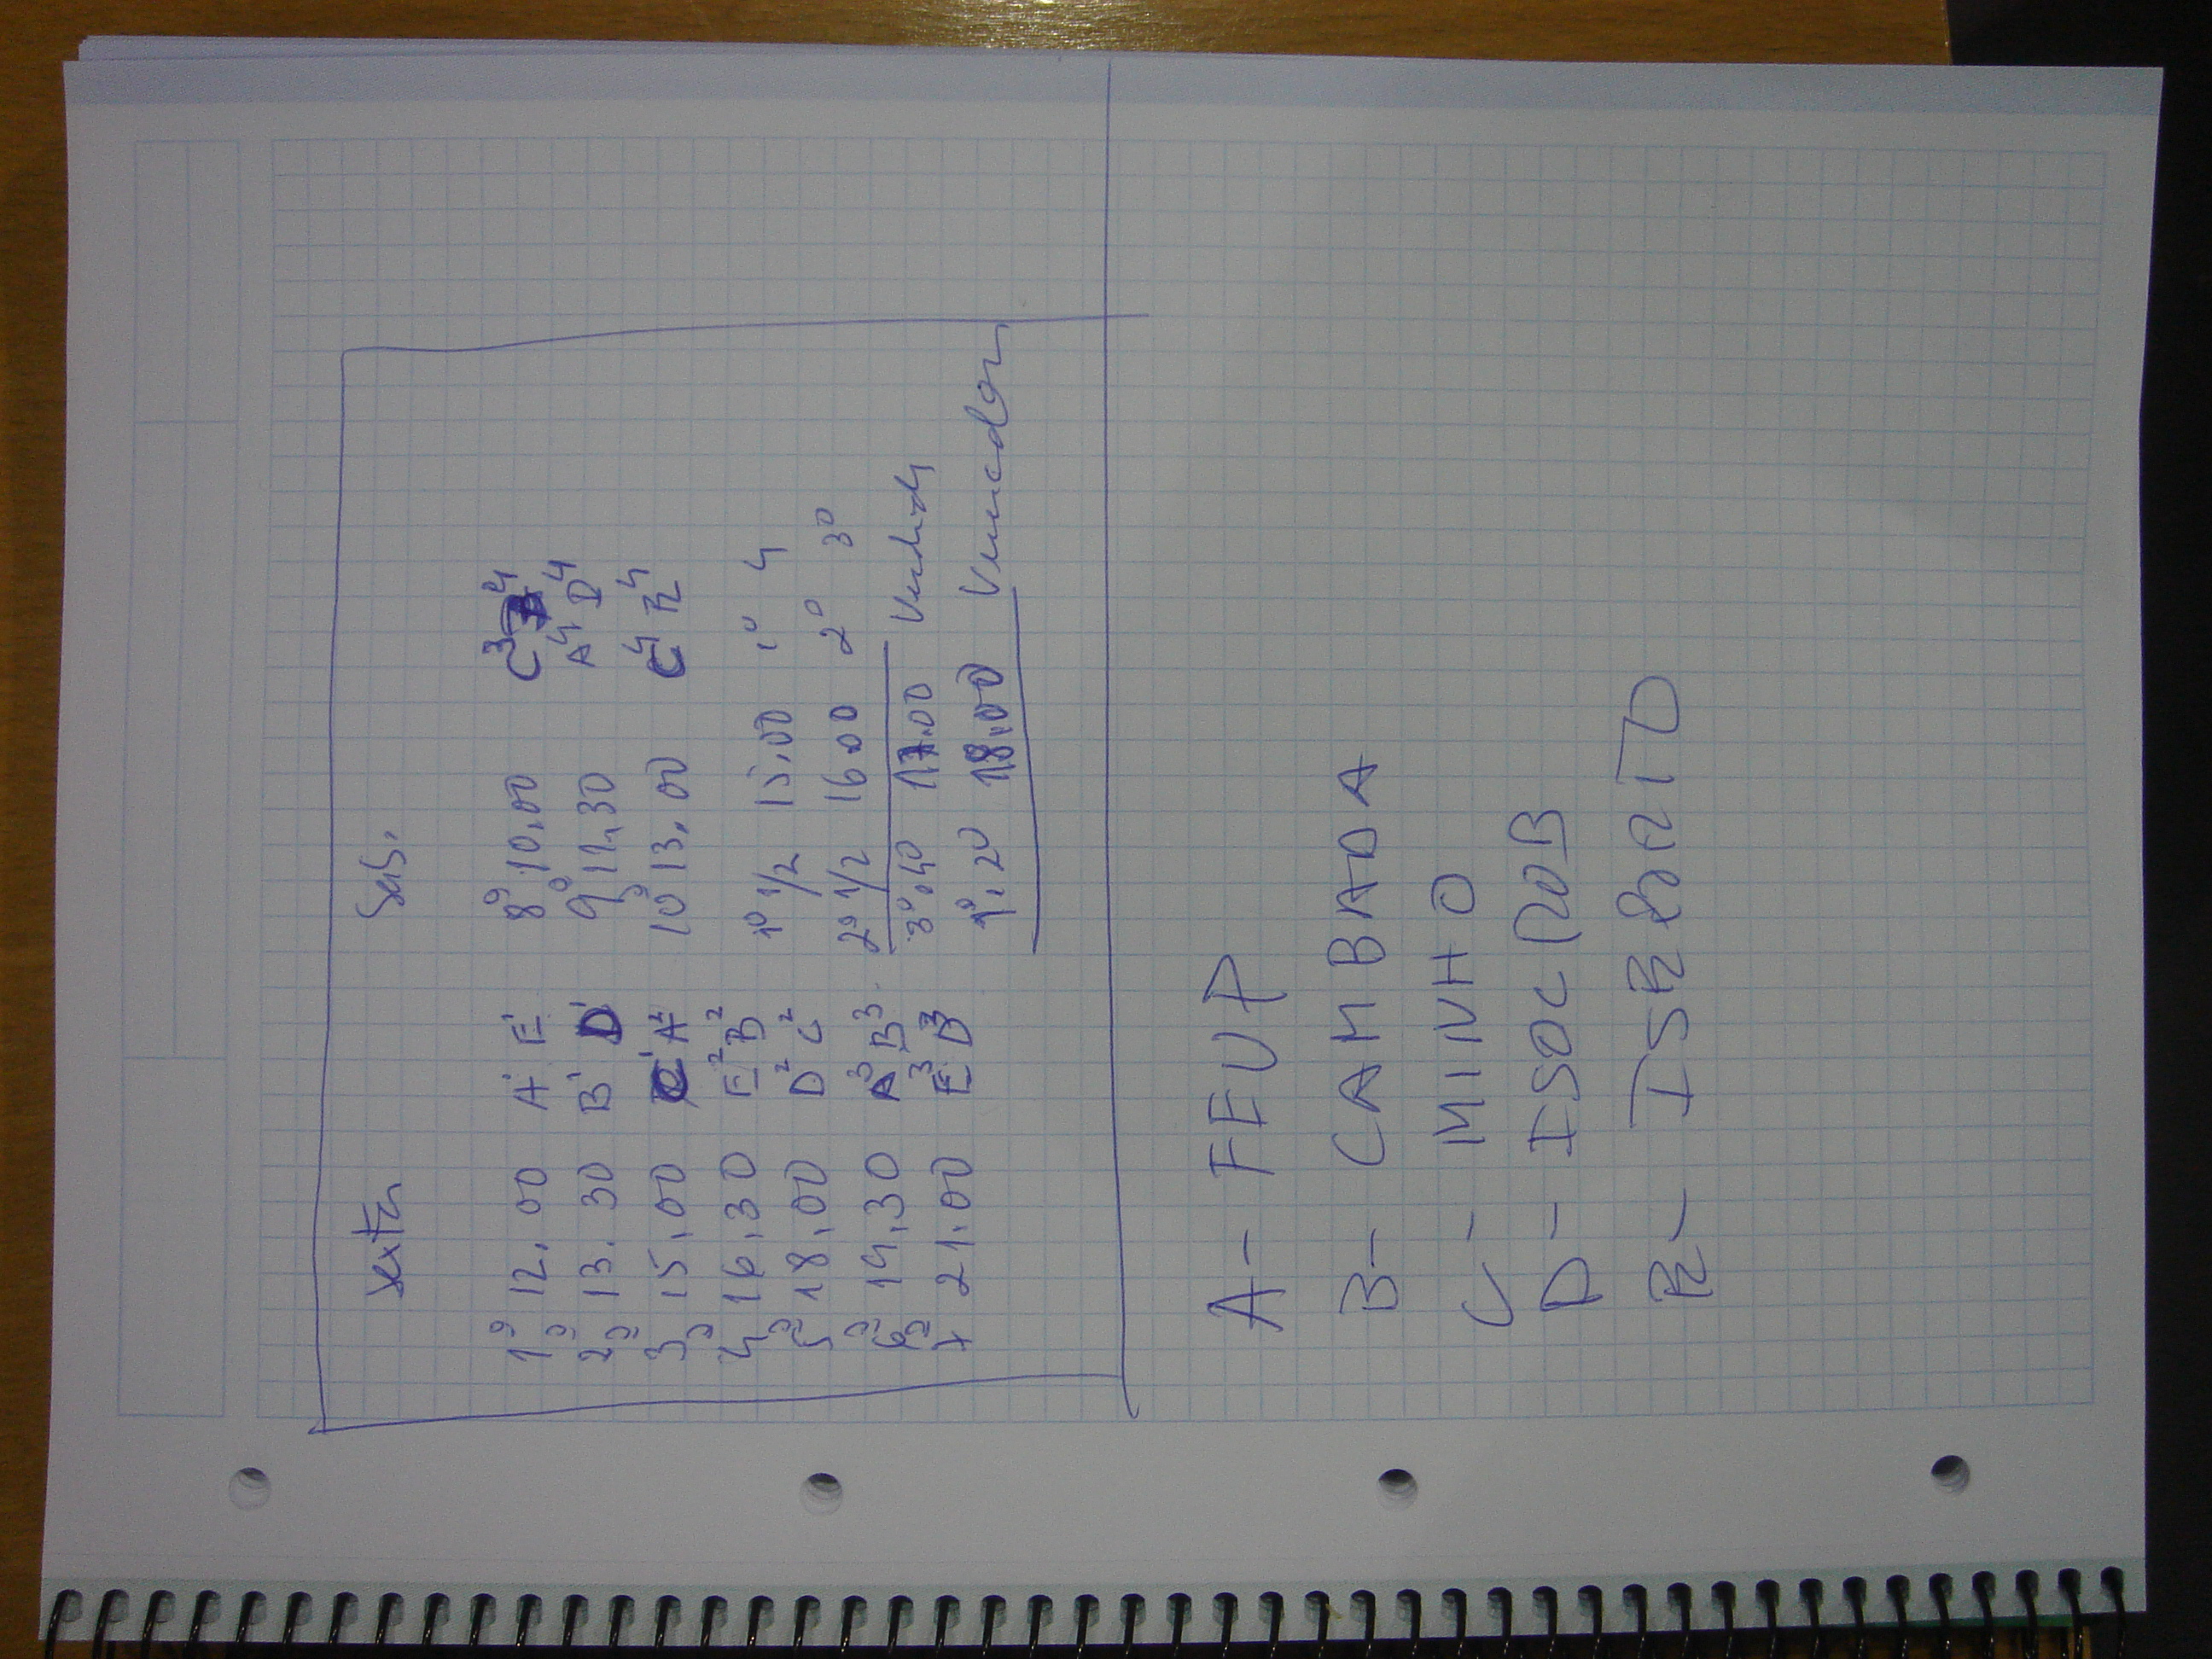 Sexta Sab.
1º 12.00 A¹ E¹ 8º 10.00 C³ 4
2º 13.30 B¹ D¹ 9º 11.30 A⁴ D⁴
3º 15.00 C¹ A² 10º 13.00 C⁴ E⁴
4º 16.30 E² B²
5º 18.00 D² C² 1º 1/2 15.00 1º 4
6º 19.30 A³ B³ 2º 1/2 16.00 2º 3º
7º 21.00 E³ D³ 3º.4º 17.00
1º.2º 18.00 Vencedor
A- FEUP
B- CAMBADA
C- MINHO
D- ISOCROB
E- ISEPBOTO